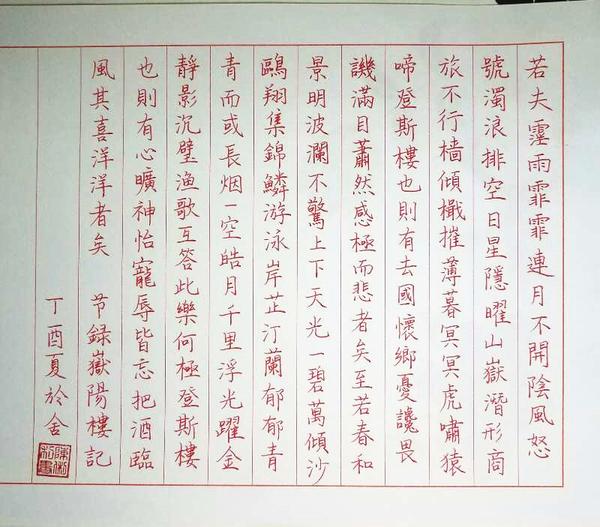 若夫霪雨霏霏連月不開陰風怒
號濁浪排空日星隱曜山嶽潛形商
旅不行樯傾檝摧薄暮冥冥虎嘯猿
啼登斯樓也則有去國懷鄉憂讒畏
譏滿目蕭然感極而悲者矣至若春和
景明波瀾不驚上下天光一碧萬傾沙
鷗翔集錦鱗游泳岸芷汀蘭郁郁青
青而或長烟一空皓月千里浮光躍金
靜影沉璧渔歌互答此樂何極登斯樓
也則有心曠神怡寵辱皆忘把酒臨
風其喜洋洋者矣 节録嶽陽樓記
丁酉夏於金